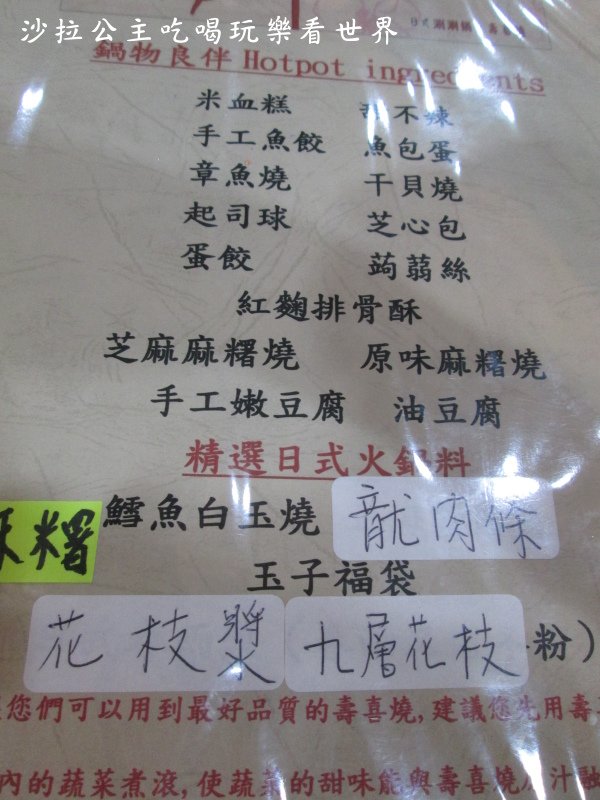 沙拉公主吃喝玩樂看世界
日式涮涮鍋
鍋物良伴 Hotpot ingredients
米血糕 甜不辣
手工魚餃 魚包蛋
章魚燒 干貝燒
起司球 芝心包
蛋餃 蒟蒻絲
紅麴排骨酥
芝麻麻糬燒 原味麻糬燒
手工嫩豆腐 油豆腐
精選日式火鍋料
糬 鱈魚白玉燒 龍肉條
玉子福袋
花枝漿 九層花枝 粉)
您們可以用到最好品質的壽喜燒,建議您先用壽
內的蔬菜煮滾,使蔬菜的甜味能與壽喜燒 汁融